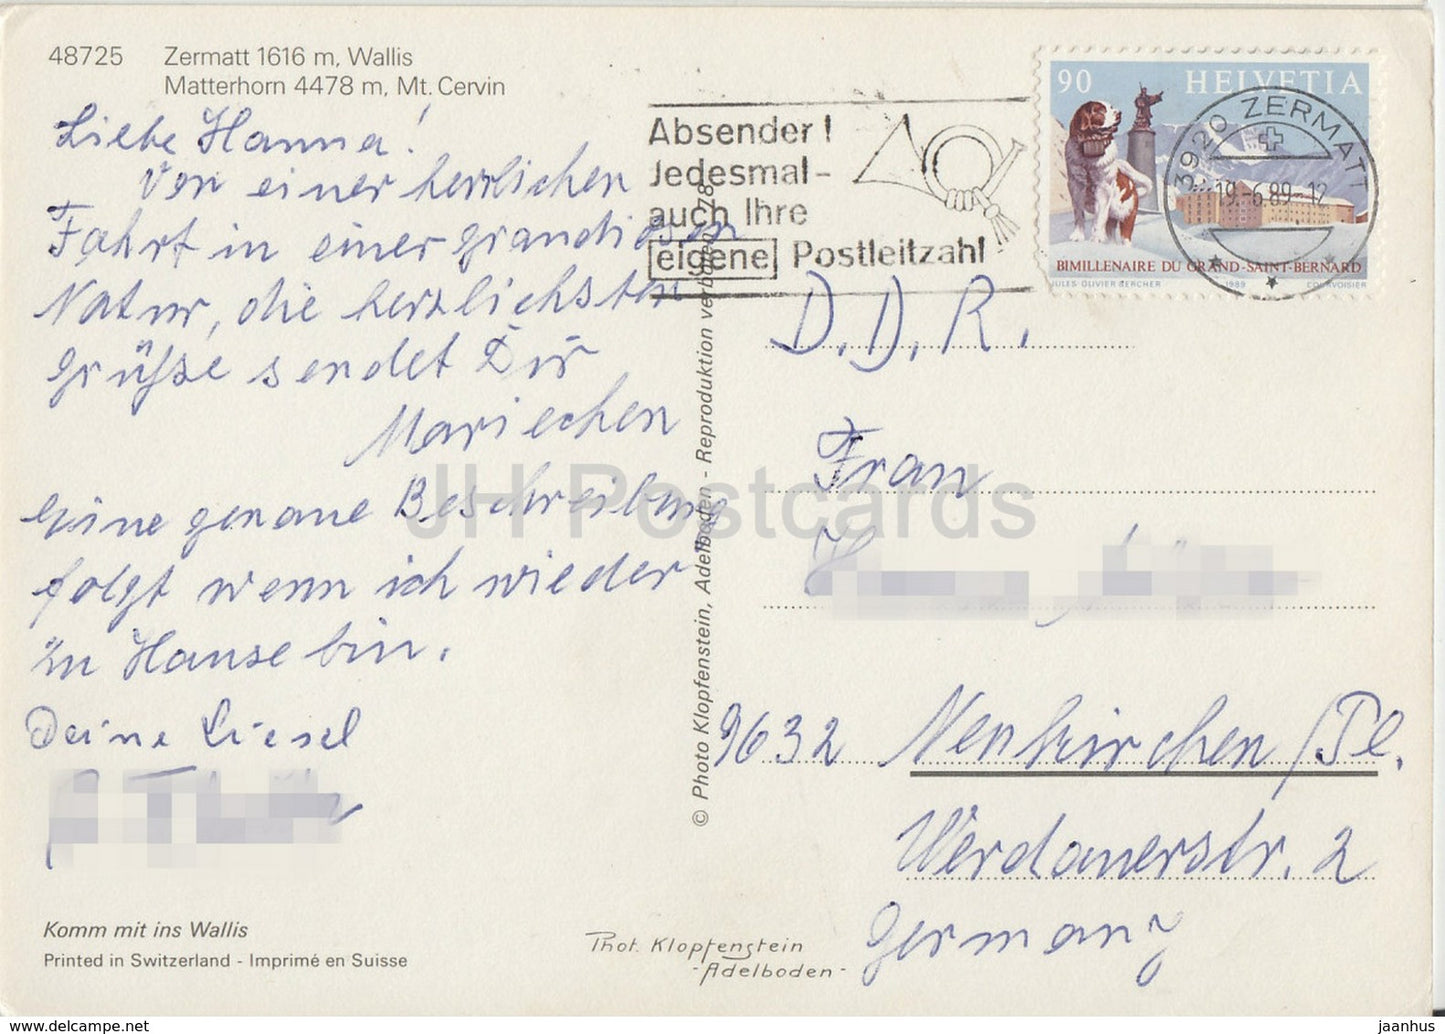 48725 Zermatt 1616 m, Wallis
Matterhorn 4478 m, Mt. Cervin
Liebe Hanna!
Von einer herrlichen
Fahrt in einer grandiosen
Natur, die herzlichsten
Grüße sendet Dir
Mariechen
Eine genaue Beschreibung
folgt wenn ich wieder
zu Hause bin.
Deine Liesel
Komm mit ins Wallis
Printed in Switzerland - Imprimé en Suisse
© Photo Klopfenstein, Adelboden - Reproduktion verboten
Phot. Klopfenstein
- Adelboden -
Absender!
Jedesmal-
auch Ihre
eigene Postleitzahl
90 HELVETIA
BIMILLENAIRE DU GRAND-SAINT-BERNARD
JULES OLIVIER BERCHER 1989 COURVOISIER
3920 ZERMATT
19.-6.89-12
D.D.R.
Frau
9632 Neukirchen/Pl.
Werdauerstr. 2
Germany
JH Postcards
jaanhus
www.delcampe.net